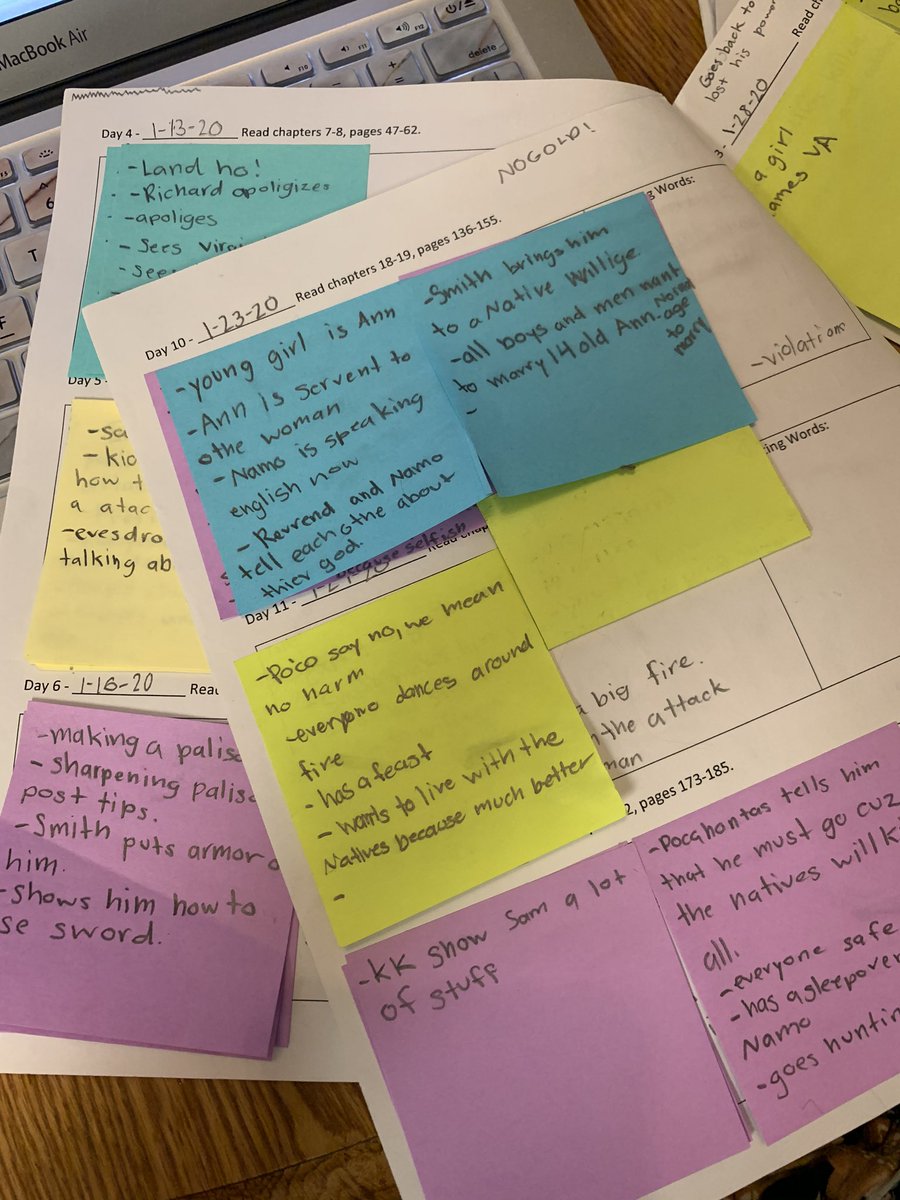 MacBook Air
F10
F11
F12
delete
+
=
6
T
Day 4 - 1-13-20 Read chapters 7-8, pages 47-62.
-Land ho!
-Richard apoligizes
-apoliges
-Sees
-See
Day 5
- kid
how t
a atac
-evesdro
talking ab
Day 6 - 1-16-20 Read
-making a palis
-sharpening palis
post tips.
-Smith puts armor o
him.
-shows him how to
se sword.
NOGOLD!
Day 10 - 1-23-20 Read chapters 18-19, pages 136-155.
g Words:
-young girl is Ann
-Ann is servent to
othe woman
-Namo is speaking
english now
-Revrend and Namo
tell each othe about
thier god.
-Smith brings him
to a Native Willige
-all boys and men want
to marry 14 old Ann. Normal
age
to
marry
-
-violation
ing Words:
because selfish
Day 11 - Read chap
-Poco say no, we mean
no harm
-everyone dances around
fire
-has a feast
-wants to live with the
Natives because much better
-
a big fire.
the attack
man
2, pages 173-185.
-KK show Sam a lot
of stuff
-Pochontas tells him
that he must go cuz
the natives will ki
all.
-everyone safe
-has a sleepover
Namo
-goes huntin
Goes back to
lost his power
3 - 1-28-20 Read ch
a girl
ames VA